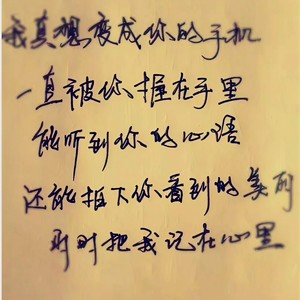 我真想变成你的手机
一直被你握在手里
能听到你的心语
还能拍下你看到的美丽
时时把我记在心里